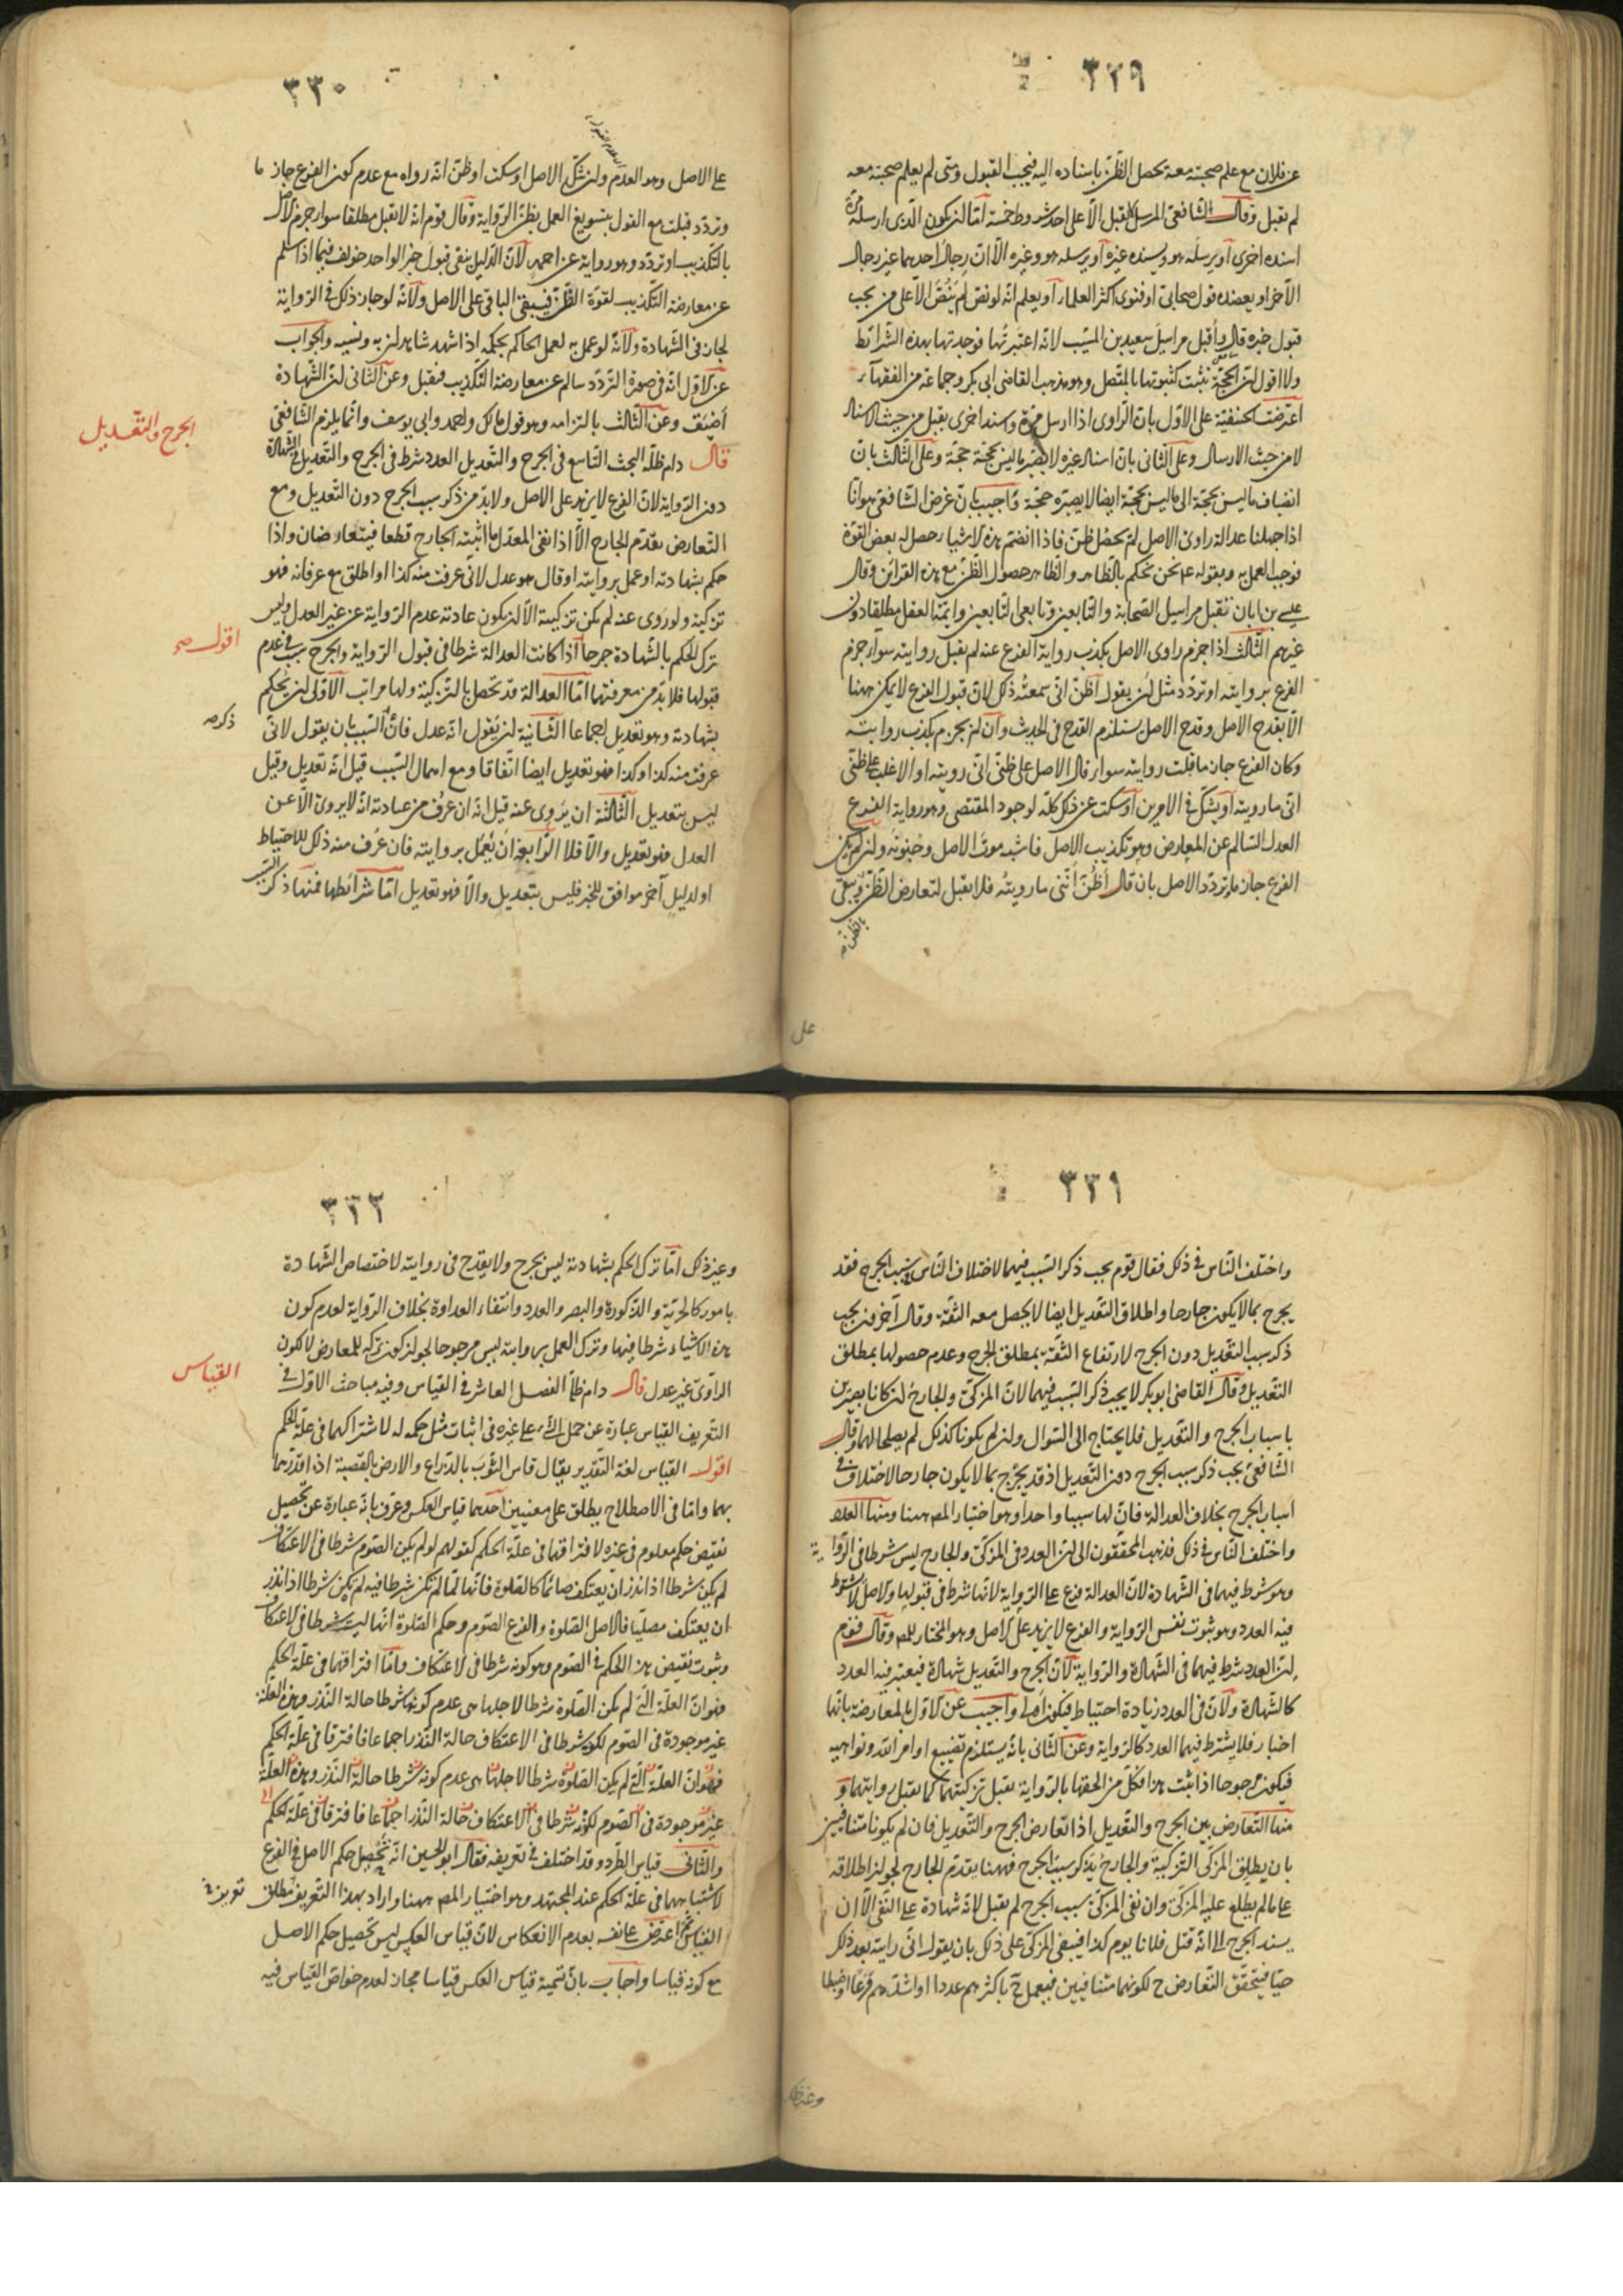 ٣٢٩
عن فلان مع علم صحبته معه يحصل الظن باسناده اليه فيجب القبول ومتى لم يعلم صحبته معه
لم يقبل وقال الشافعى المرسل لا يقبل الا على احد شروط خمسة اما ان يكون الذى ارسله مرة
اسنده اخرى او يرسله هو ويسنده غيره او يرسله هو وغيره الا ان رجال احدهما غير رجال
الآخر او يعضده قول صحابى او فتوى اكثر العلماء او يعلم انه لو نص لم ينص الا على من يجب
قبول خبره قال واقبل مراسيل سعيد بن المسيب لانه اعتبرتها فوجدتها بهذه الشرائط
ولا اقول ان الحجة تثبت كثبوتها بالمتصل وهو مذهب القاضى ابى بكر وجماعة من الفقهاء
اعترضت الحنفية على الاول بان الراوى اذا ارسل مرة واسند اخرى يقبل من حيث الاسناد
لا من حيث الارسال وعلى الثانى بان اسناد غيره لا يصير ما ليس بحجة حجة وعلى الثالث بان
انضياف ما ليس بحجة الى ما ليس بحجة ايضا لا يصيره حجة واجيب بان غرض الشافعى هو انا
اذا جهلنا عدالة راوى الاصل لم يحصل ظن فاذا انضم هذه الاشياء حصل له بعض القوة
فوجب العمل به وبقوله ع نحن نحكم بالظاهر والظاهر حصول الظن مع هذه القرائن وقال
عيسى بن ابان تقبل مراسيل الصحابة والتابعين وتابعى التابعين وايمة النقل مطلقا دون
غيرهم الثالث اذا جزم راوى الاصل بكذب رواية الفرع عنه لم يقبل روايته سواء جزم
الفرع بروايته او تردد مثل ان يقول اظن انى سمعته ذلك لان قبول الفرع لا يمكن ههنا
الا بقدح الاصل وقدح الاصل يستلزم القدح فى الحديث وان لم يجزم بكذب روايته
وكان الفرع جازما قبلت روايته سواء قال الاصل على ظنى انى رويته او الاغلب على ظنى
انى ما رويته او يشك فى الامرين او سكت عن ذلك كله لوجود المقتضى وهو رواية الفرع
العدل السالم عن المعارض وهو تكذيب الاصل فاشبه موت الاصل وجنونه وان لم يكن
الفرع جازما وتردد الاصل بان قال اظن اننى ما رويته فلا يقبل لتعارض الظن ويبقى
على
٣٣٠
على الاصل وهو العدم وان شك الاصل او سكت او ظن انه رواه مع عدم كون الفرع جاز ما
وتردد قبلت مع القول بتسويغ العمل بظن الرواية وقال قوم انه لا تقبل مطلقا سواء جزم الاصل
بالتكذيب او تردد وهو رواية عن احمد لان الدليل ينفى قبول خبر الواحد خولف فيما اذا سلم
عن معارضة التكذيب لقوة الظن فيبقى الباقى على الاصل ولانه لو جاز ذلك فى الرواية
لجاز فى الشهادة ولانه لو عمل به لعمل الحاكم بحكمه اذا شهد شاهدان به ونسيه والجواب
عن الاول انه فى صورة التردد سالم عن معارضة التكذيب فيقبل وعن الثانى ان الشهادة
اضيق وعن الثالث بالتزامه وهو قول مالك واحمد وابى يوسف وانما يلزم الشافعى
الجرح والتعديل
قال دام ظله البحث التاسع فى الجرح والتعديل العدد شرط فى الجرح والتعديل فى الشهادة
دون الرواية لان الفرع لا يزيد على الاصل ولا بد من ذكر سبب الجرح دون التعديل ومع
التعارض يقدم الجارح الا اذا نفى المعدل ما اثبته الجارح قطعا فيتعارضان واذا
حكم بشهادته او عمل بروايته او قال هو عدل لانى عرفت منه كذا او اطلق مع عرفانه فهو
تزكية ولو روى عنه لم يكن تزكية الا ان يكون عادته عدم الرواية عن غير العدل وليس
ترك الحكم بالشهادة جرحا اذا كانت العدالة شرطا فى قبول الرواية والجرح سبب فى عدم
اقول صح
قبولها فلا بد من معرفتهما اما العدالة فقد تحصل بالتزكية ولها مراتب الاولى ان يحكم
بشهادته وهو تعديل اجماعا الثانية ان يقول انه عدل فان السبب بان يقول لانى
ذكر صح
عرفت منه كذا وكذا فهو تعديل ايضا اتفاقا ومع اهمال السبب قيل انه تعديل وقيل
ليس بتعديل الثالثة ان يروى عنه قيل انه ان عرف من عادته انه لا يروى الا عن
العدل فهو تعديل والا فلا الرابعة ان يعمل بروايته فان عرف منه ذلك للاحتياط
او لدليل آخر موافق للخبر فليس بتعديل والا فهو تعديل اما شرائطها فمنها ذكر السبب
٣٣١
واختلف الناس فى ذلك فقال قوم يجب ذكر السبب فيهما لاختلاف الناس بسبب الجرح فقد
يجرح بما لا يكون جارحا واطلاق التعديل ايضا لا يحصل معه الثقة وقال آخرون يجب
ذكر سبب التعديل دون الجرح لارتفاع الثقة بمطلق الجرح وعدم حصولها بمطلق
التعديل وقال القاضى ابو بكر لا يجب ذكر السبب فيهما لان المزكى والجارح ان كانا بصيرين
باسباب الجرح والتعديل فلا يحتاج الى السوال وان لم يكونا كذلك لم يصلحا لهما وقال
الشافعى يجب ذكر سبب الجرح دون التعديل اذ قد يجرح بما لا يكون جارحا لاختلاف فى
اسباب الجرح بخلاف العدالة فان لها سببا واحدا وهو اختيار المص ههنا ومنها العدد
واختلف الناس فى ذلك فذهب المحققون الى ان العدد فى المزكى والجارح ليس شرطا فى الرواية
وهو شرط فيهما فى الشهادة لان العدالة فرع على الرواية لانها شرط فى قبولها والاصل لا يشترط
فيه العدد وهو ثبوت نفس الرواية والفرع لا يزيد على الاصل وهو المختار للمص وقال قوم
ان العدد شرط فيهما فى الشهادة والرواية لان الجرح والتعديل شهادة فيعتبر فيه العدد
كالشهادة ولان فى العدد زيادة احتياط فيكون اولى واجيب عن الاول بالمعارضة بانها
اخبار فلا يشترط فيهما العدد كالرواية وعن الثانى بانه يستلزم تضييع اوامر الله ونواهيه
فيكون مرجوحا اذا ثبت هذا فكل من الحقها بالرواية يقبل تزكيتهما كما يقبل روايتهما و
منها التعارض بين الجرح والتعديل اذا تعارض الجرح والتعديل فان لم يكونا متنافيين
بان يطلق المزكى التزكية والجارح يذكر سبب الجرح فههنا يقدم الجارح لجواز اطلاقه
على ما لم يطلع عليه المزكى وان نفى المزكى سبب الجرح لم يقبل لانه شهادة على النفى الا ان
يسند الجرح الى انه قتل فلانا يوم كذا فينفى المزكى على ذلك بان يقول انى رايته بعد ذلك
حيا فيتحقق التعارض ح لكونهما متنافيين فيعمل ح باكثرهم عددا او اشدهم ورعا او ضبطا
وغير ذلك
٣٣٢
وغير ذلك اما ترك الحكم بشهادته ليس بجرح ولا يقدح فى روايته لاختصاص الشهادة
بامور كالحرية والذكورة والبصر والعدد وانتفاء العداوة بخلاف الرواية لعدم كون
هذه الاشياء شرطا فيها وترك العمل بروايته ليس مرجوحا لجواز كون تركه للمعارض لا لكون
القياس
الراوى غير عدل قال دام ظله الفصل العاشر فى القياس وفيه مباحث الاول فى
التعريف القياس عبارة عن حمل الشىء على غيره فى اثبات مثل حكمه له لاشتراكهما فى علة الحكم
اقول القياس لغة التقدير يقال قاس الثوب بالذراع والارض بالقصبة اذا قدرهما
بهما واما فى الاصطلاح يطلق على معنيين احدهما قياس العكس وعرف بانه عبارة عن تحصيل
نقيض حكم معلوم فى غيره لافتراقهما فى علة الحكم كقولهم لو لم يكن الصوم شرطا فى الاعتكاف
لم يكن شرطا اذا نذر ان يعتكف صائما كالصلوة فانها لما لم تكن شرطا فيه لم يكن شرطا اذا نذر
ان يعتكف مصليا فالاصل الصلوة والفرع الصوم وحكم الصلوة انها ليست شرطا فى الاعتكاف
وثبوت نقيض هذا الحكم فى الصوم وهو كونه شرطا فى الاعتكاف واما افتراقهما فى علة الحكم
فهو ان العلة التى لم يكن الصلوة شرطا لاجلها هى عدم كونها شرطا حالة النذر وهذه العلة
غير موجودة فى الصوم لكونه شرطا فى الاعتكاف حالة النذر اجماعا فافترقا فى علة الحكم
فهو ان العلة التى لم يكن الصلوة شرطا لاجلها هى عدم كونه شرطا حالة النذر وهذه العلة
غير موجودة فى الصوم لكونه شرطا فى الاعتكاف حالة النذر اجماعا فافترقا فى علة الحكم
والثانى قياس الطرد وقد اختلف فى تعريفه فقال ابو الحسين انه تحصيل حكم الاصل فى الفرع
لاشتباههما فى علة الحكم عند المجتهد وهو اختيار المص ههنا واراد بهذا التعريف مطلق
القياس ثم اعترض على نفسه بعدم الانعكاس لان قياس العكس ليس تحصيل حكم الاصل
مع كونه قياسا واجاب بان تسمية قياس العكس قياسا مجاز لعدم خواص القياس فيه